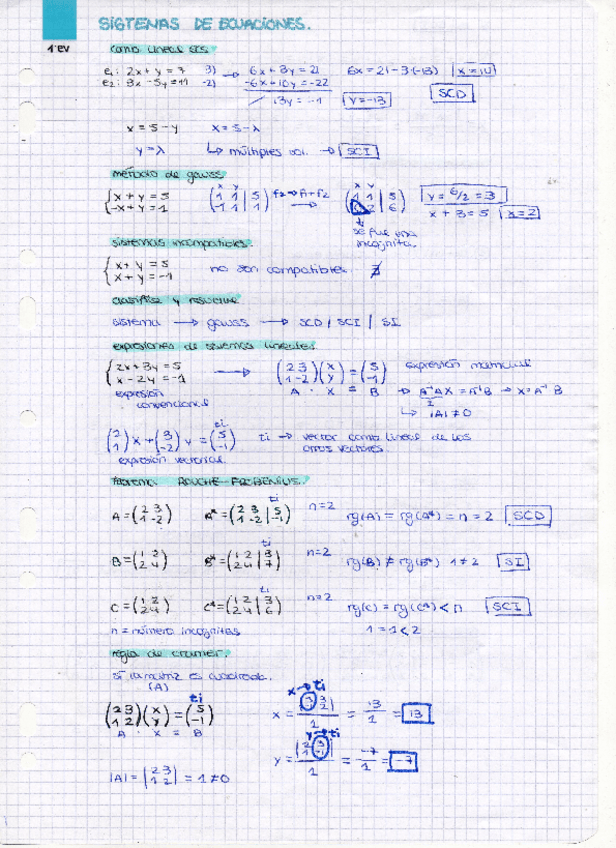 SISTEMAS DE ECUACIONES.
1ªEV
comb lineal SCS
e1: 2x + y = 7 3) → 6x + 3y = 21 6x = 21 - 3(-13)
e2: 3x - 5y = 11 -2) -6x + 10y = -22
13y = -1 y = -13 SCD
x = 5 - y x = 5 - λ
y = λ ↳ múltiples sol. → SCI
método de gauss
x + y = 5
-x + y = 1
x y
(1 1 | 5
-1 1 | 1)
→
x y
y = 6/2 = 3
x + 3 = 5 x = 2
se fue una
incognita.
sistemas incompatibles.
x + y = 5
x + y = -1
no son compatibles. ∄
clasificar y resolver
sistema → gauss → SCD / SCI / SI
expresiones de sistemas lineales
2x + 3y = 5
x - 2y = -1
→ (2 3
1 -2) (x
y) = (5
-1) expresión matricial
A · X = B → A⁻¹AX = A⁻¹B → X = A⁻¹ B
I
↳ |A| ≠ 0
expresión
convencional
(2
1) x + (3
-2) y = (5
-1)
ti
ti → vector comb lineal de los
otros vectores.
expresión vectorial.
teorema ROUCHÉ-FROBENIUS.
A = (2 3
1 -2) A* = (2 3 | 5
1 -2 | -1) ti n=2 rg(A) = rg(A*) = n = 2 SCD
B = (1 2
2 4) B* = (1 2 | 3
2 4 | 7) ti n=2 rg(B) ≠ rg(B*) 1≠2 SI
C = (1 2
2 4) C* = (1 2 | 3
2 4 | 6) ti n=2 rg(C) = rg(C*) < n SCI
n = número incognitas 1 = 1 < 2
regla de cramer.
si la matriz es cuadrada.
(A)
ti
(2 3
1 2) (x
y) = (5
-1)
A · X = B
x → ti
= 13/1 = 13
y → ti
= -7/1 = -7
|A| = |2 3
1 2| = 1 ≠ 0